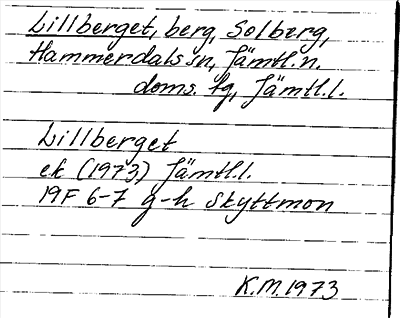 Lillberget, berg, Solberg,
Hammerdals sn, Jämtl. n.
doms. fg, Jämtl. l.
Lillberget
ek (1973) Jämtl. l.
19F 6-7 g-h Skyttmon
K.M. 1973